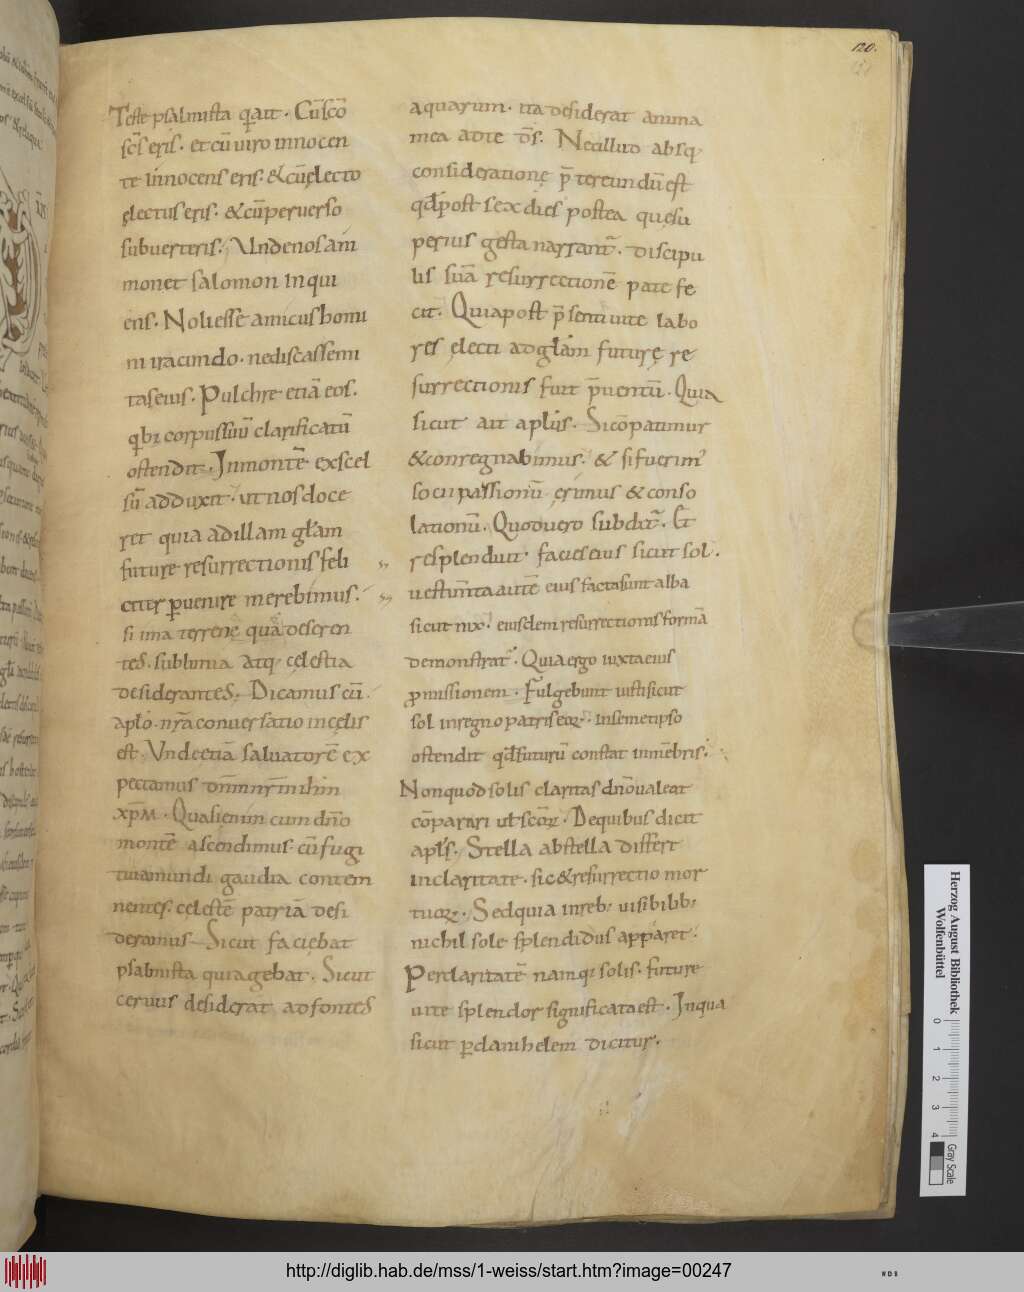 120.
Teste psalmista q̣ ait. Cū sc̄o
sc̄s eris. et cū uiro innocen
te innocens eris. & cū electo
electus eris. & cū peruerso
subuerteris. Unde nos am̄
monet salamon inqui
ens. Noli esse amicus homi
ni iracundo. ne discas semi
tas eius. Pulchre etiā eos.
qb; corpus suū clarificatū
ostendit. In montē excel
sū adduxit. ut nos doce
ret quia ad illam gl̄am
future resurrectionis feli
citer ꝑuenire merebimus.
si ima terrene quā deseren
tes. sublimia atq; celestia
desiderantes. Dicamus cū
apl̄o. nr̄a conuersatio in celis
est. Unde etiā saluatorē ex
pectamus dn̄m nr̄m ihm̄
xp̄m. Quasi enim cum dn̄o
montē ascendimus. cū fugi
tiua mundi gaudia contem
nentes. celestē patriā desi
deramus. Sicut faciebat
psalmista qui agebat. Sicut
ceruus desiderat ad fontes
aquarum. ita desiderat anima
mea ad te d̄s. Nec illud absq;
consideratione p̄tereundū est
qđ post sex dies postea que su
perius gesta narrant̄. discipu
lis suā resurrectionē patefe
cit. Quia post p̄senti uite labo
res electi ad gl̄am future re
surrectionis sunt p̄uenturi. Quia
sicut ait apl̄us. Si cōpatimur
& conregnabimus. & si fuerim'
socii passionū. erimus & conso
lationū. Quod uero subdit̄. Et
resplenduit facies eius sicut sol.
uestim̄ta autē eius facta sunt alba
sicut nix. eiusdem resurrectionis formā
demonstrat. Quia ergo iuxta eius
ꝓmissionem. Fulgebunt iusti sicut
sol in regno patris eoꝝ. in semetipso
ostendit qđ futurū constat in mēbris.
Non quod solis claritas dn̄o ualeat
cōparari ut scōꝝ. De quibus dicit
apl̄s. Stella ab stella differt
in claritate. sic & resurrectio mor
tuoꝝ. Sed quia in reb; uisibilib;
nichil sole splendidus apparet.
Per claritatē namq; solis. future
uite splendor significata est. In qua
sicut ꝑ danihelem dicitur.
Herzog August Bibliothek
Wolfenbüttel
0 1 2 3 4
Gray Scale
http://diglib.hab.de/mss/1-weiss/start.htm?image=00247